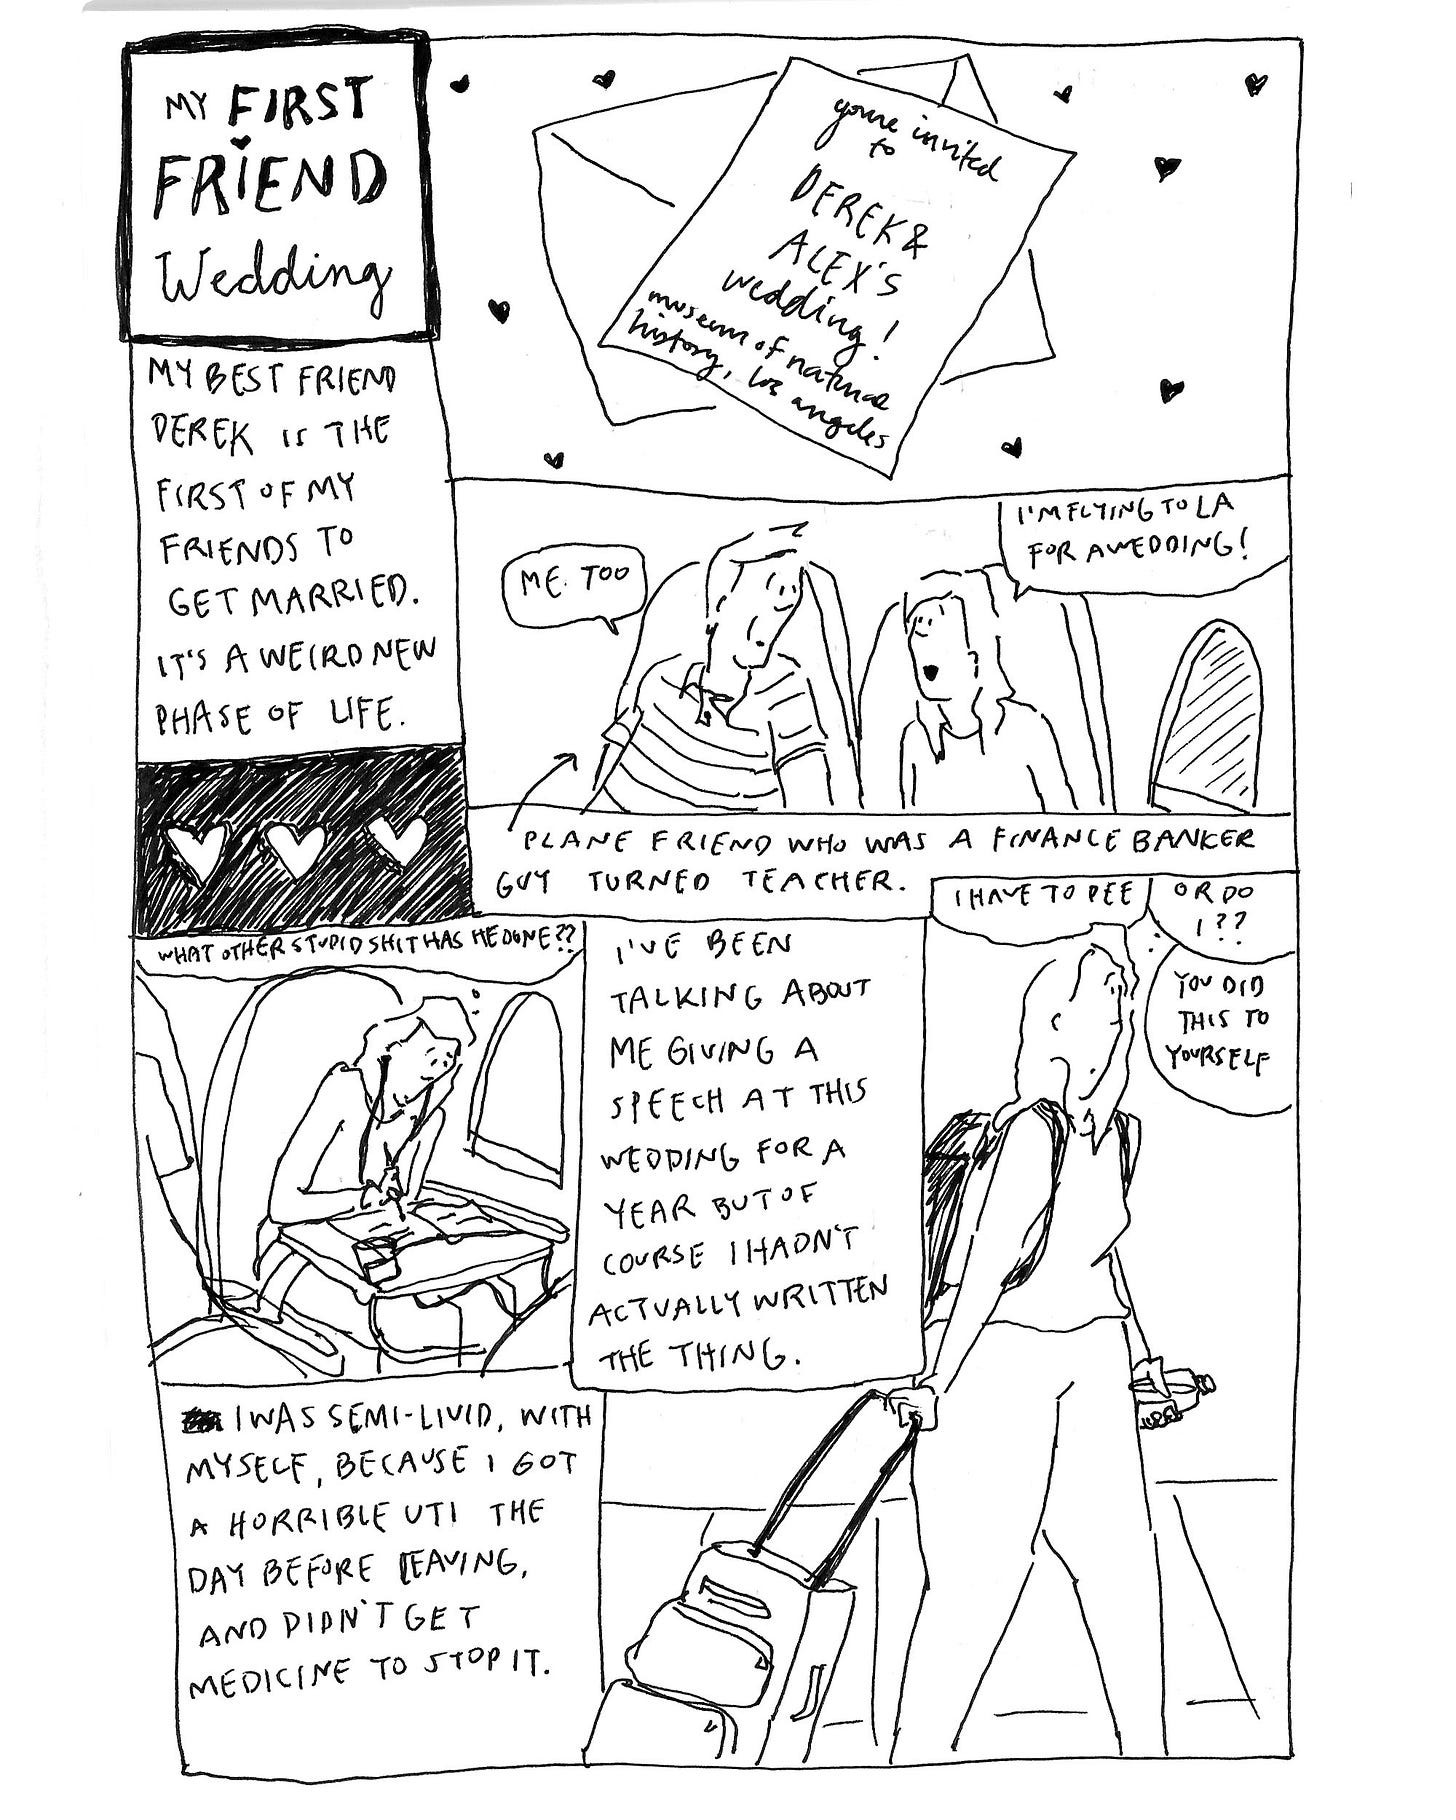 MY FIRST
FRIEND
Wedding
MY BEST FRIEND
DEREK IS THE
FIRST OF MY
FRIENDS TO
GET MARRIED.
IT'S A WEIRD NEW
PHASE OF LIFE.
you're invited
to
DEREK &
ALEX'S
wedding!
museum of natural
history, los angeles
I'M FLYING TO LA
FOR A WEDDING!
ME TOO
PLANE FRIEND WHO WAS A FINANCE BANKER
GUY TURNED TEACHER.
WHAT OTHER STUPID SHIT HAS HE DONE??
I'VE BEEN
TALKING ABOUT
ME GIVING A
SPEECH AT THIS
WEDDING FOR A
YEAR BUT OF
COURSE I HADN'T
ACTUALLY WRITTEN
THE THING.
I HAVE TO PEE
OR DO
I??
YOU DID
THIS TO
YOURSELF
I WAS SEMI-LIVID, WITH
MYSELF, BECAUSE I GOT
A HORRIBLE UTI THE
DAY BEFORE LEAVING,
AND DIDN'T GET
MEDICINE TO STOP IT.